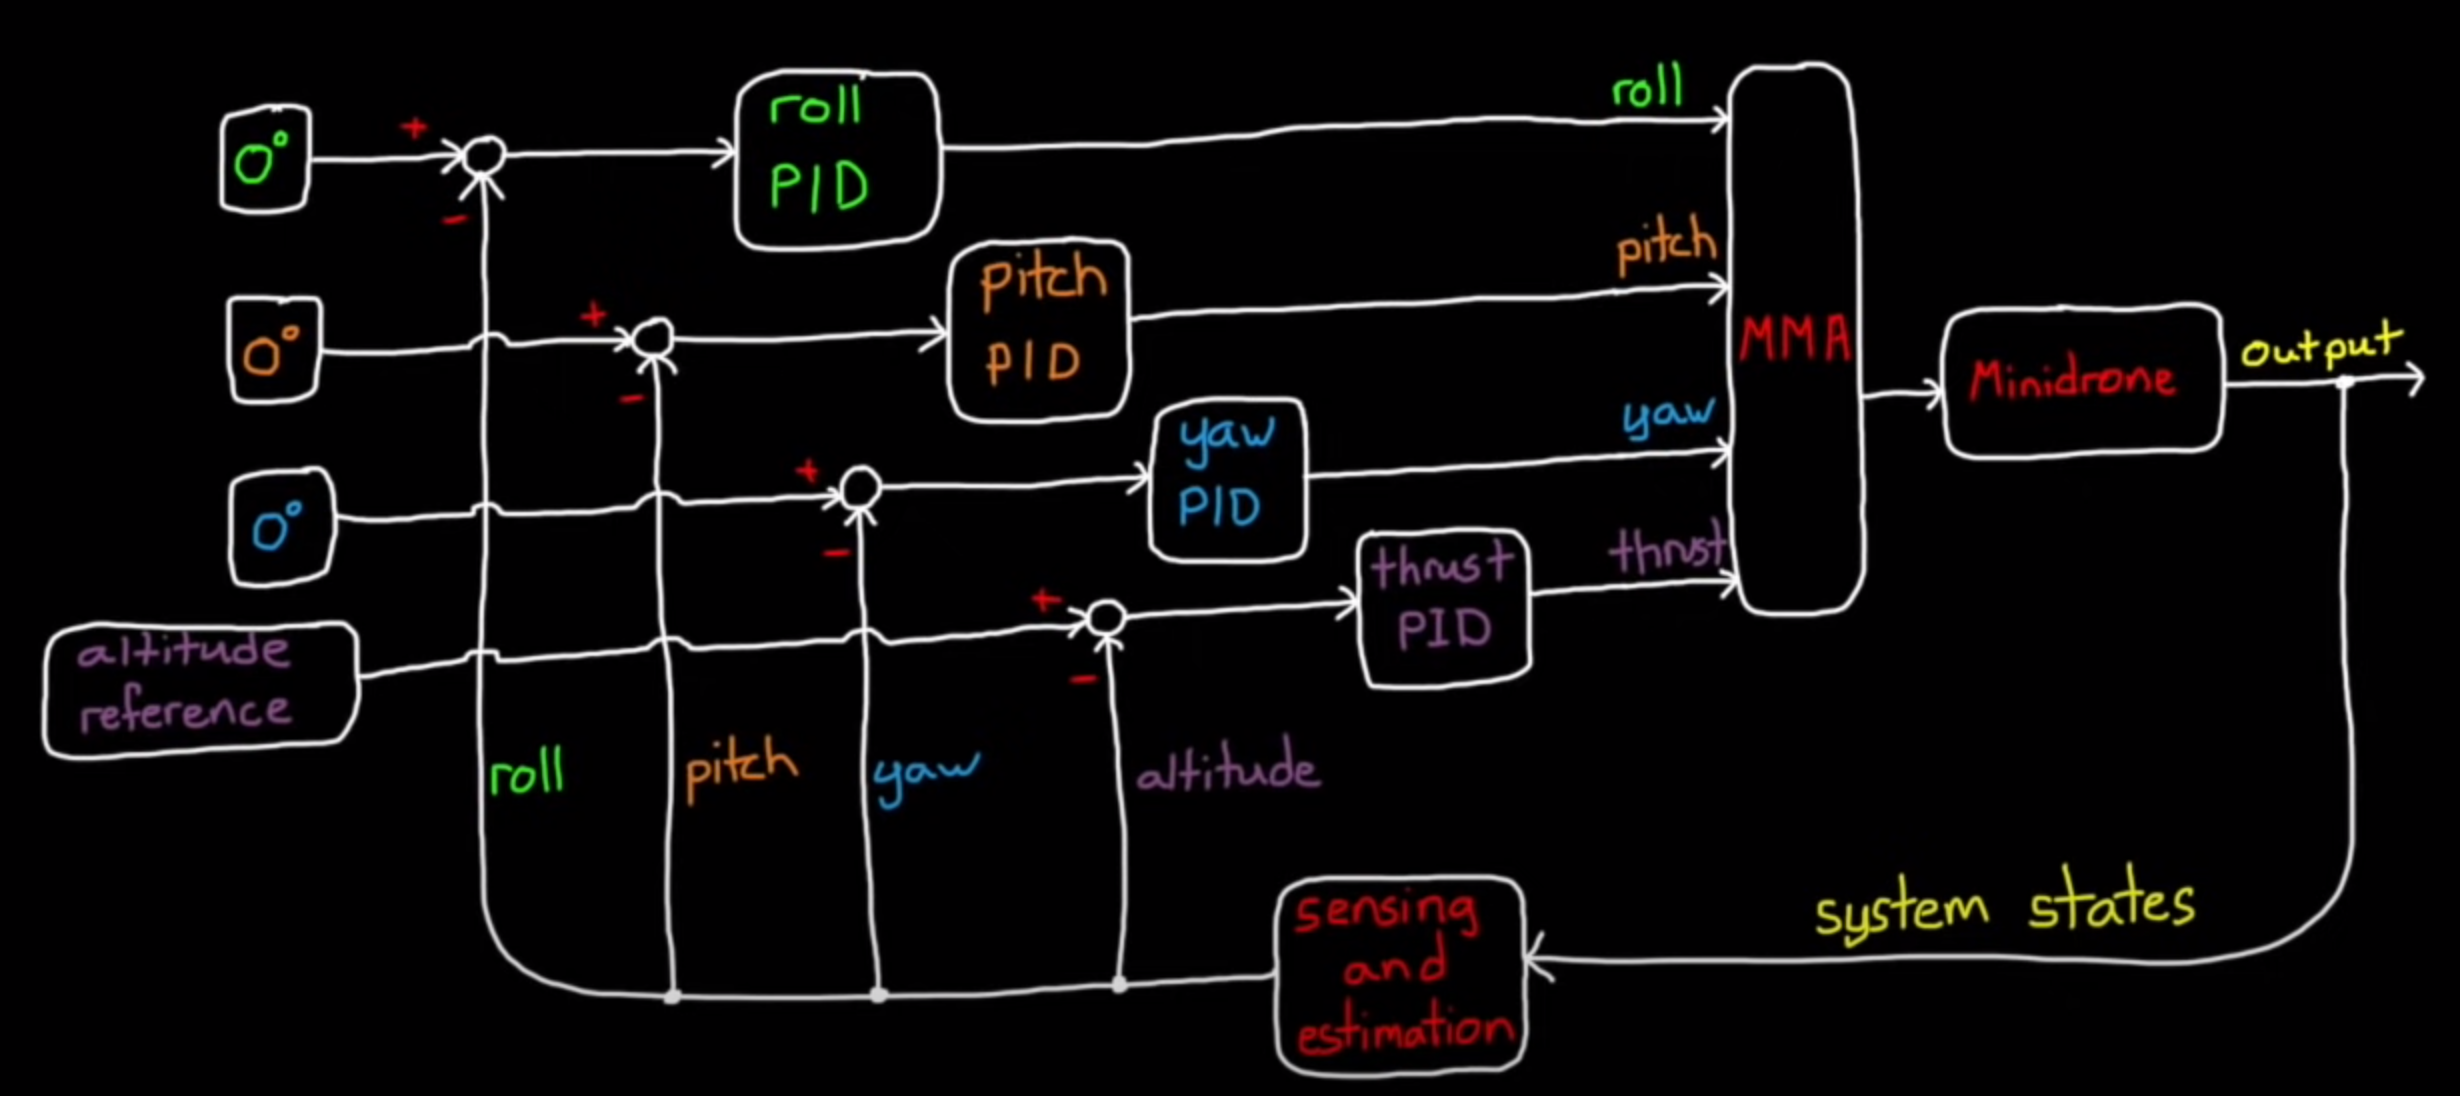 0°
+
-
roll
PID
roll
0°
+
-
pitch
PID
pitch
0°
+
-
yaw
PID
yaw
altitude
reference
+
-
thrust
PID
thrust
MMA
Minidrone
output
roll
pitch
yaw
altitude
sensing
and
estimation
system states